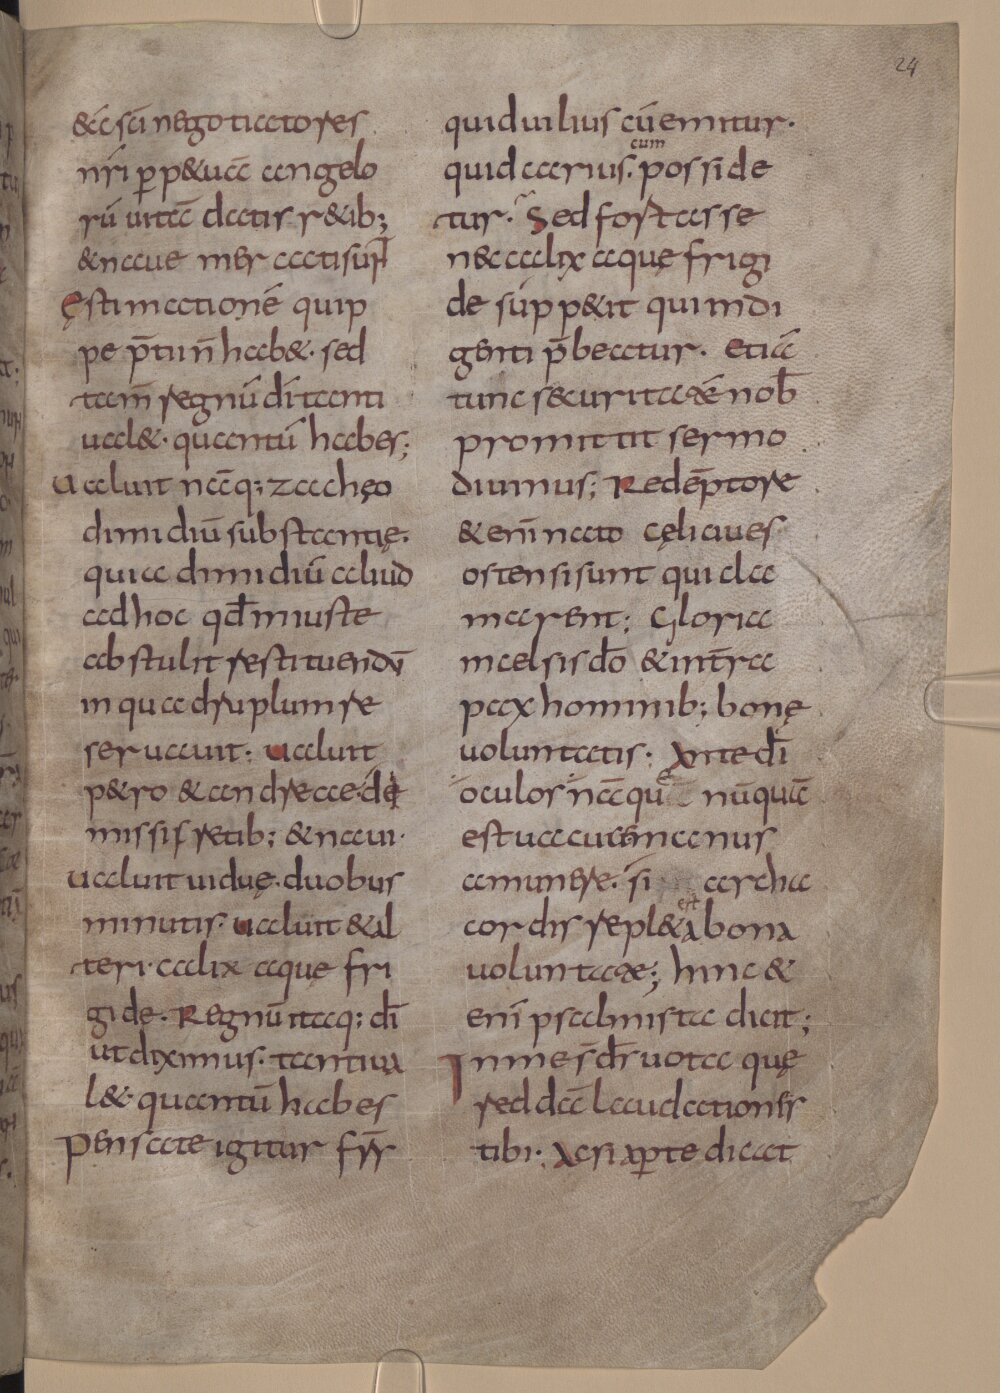 24
&c̄ sc̄i negotiatores
nr̄i ꝑp&uā angelo
rū uitā datis r&ib;
& naue mercatisuꝑ
Ęstimationē quip
pe p̄tiū n̄ hab&· sed
tam̄ regnū dī tanti
ual&· quantū habes;
Ualuit nāq; zachęo
dimidiū substantię·
quia dimidiū aliud
ad hoc qđ iniuste
abstulit restituendū
in quadruplum re
seruauit· ualuit
p&ro & andreae· dę
missis retib; & naui·
Ualuit uiduę· duobus
minutis· ualuit & al
teri· calix aquę fri
gidę· Regnū itaq; dī
ut diximus· tanti ua
l&· quantū habes
Pensate igitur fr̄r
quid uilius cū emitur·
cum
quid carius· posside
tur· Sed fortasse
nec calix aquę frigi
de suppetit qui indi
genti p̄beatur· etiā
tunc securitatē nob̄
promittit sermo
diuinus; Redēptore
& enī nato cęli ciues
ostensi sunt qui cla
marent; Gloria
in celsis dō & in tr̄ra
pax hominib; bonę
uoluntatis· Ante dī
oculos nāque nūquā
est uacua manus
a munere· si archa
est
cordis repl&a bona
uoluntate; hinc &
enī psalmista dicit;
In me s̄ d̄s uota quę
reddā laudationes
tibi· Ac si aꝑte dicat